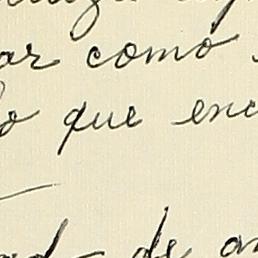 ar como
o que enc
ad - de an